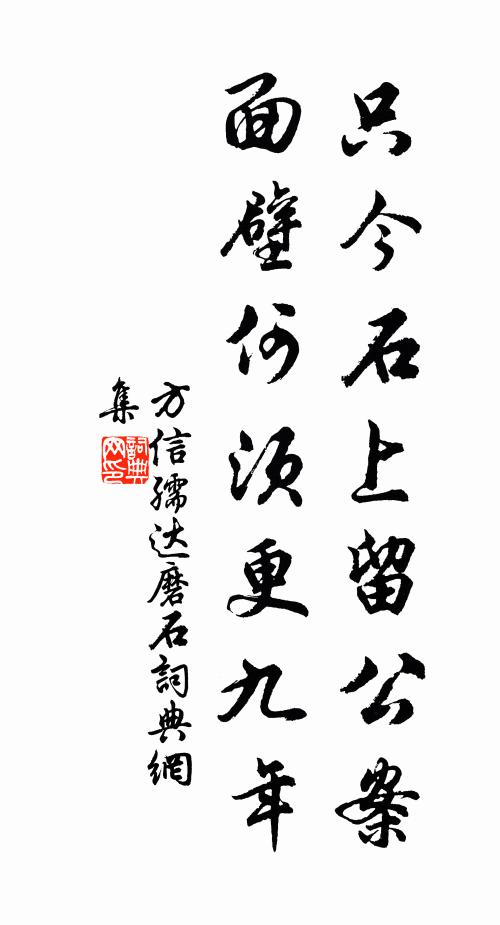 只今石上留公案
面壁何须更九年
方信孺达磨石詞典網
集
詞典网印